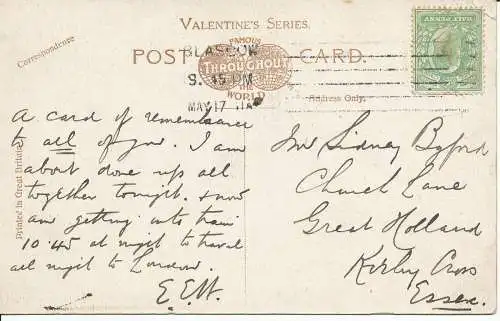 VALENTINE'S SERIES.
Correspondence
POST CARD.
FAMOUS
THROUGHOUT
THE
WORLD
GLASGOW
9.45 PM
MAY 17
Address Only.
HALFPENNY
Printed in Great Britain
A card of remembrance
to all of you. I am
about done up all
together tonight. & now
am getting into train
10.45 at night to travel
all night to London.
E.E.W.
Mr Sidney Byford
Church Lane
Great Holland
Kirby Cross
Essex.